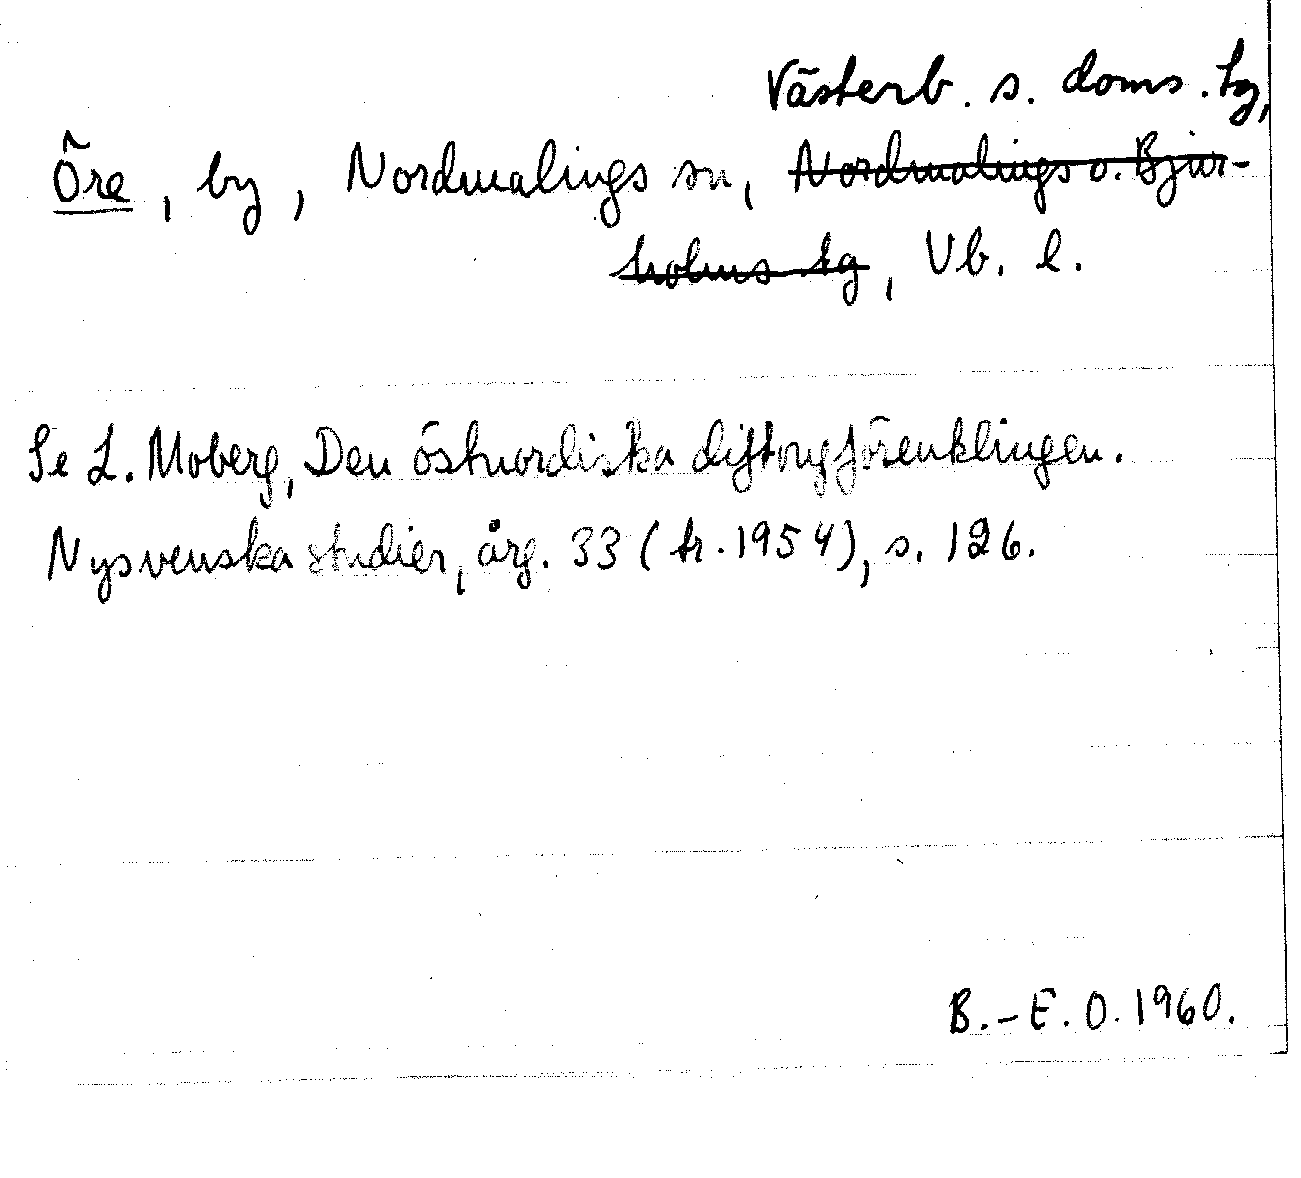 Västerb. s. doms. tg,
Öre, by, Nordmalings sn, Nordmalings o. Bjur-
holms tg, Vb. l.
Se L. Moberg, Den östnordiska diftongförenklingen.
Nysvenska studier, årg. 33 (tr. 1954), s. 126.
B.-E. O. 1960.